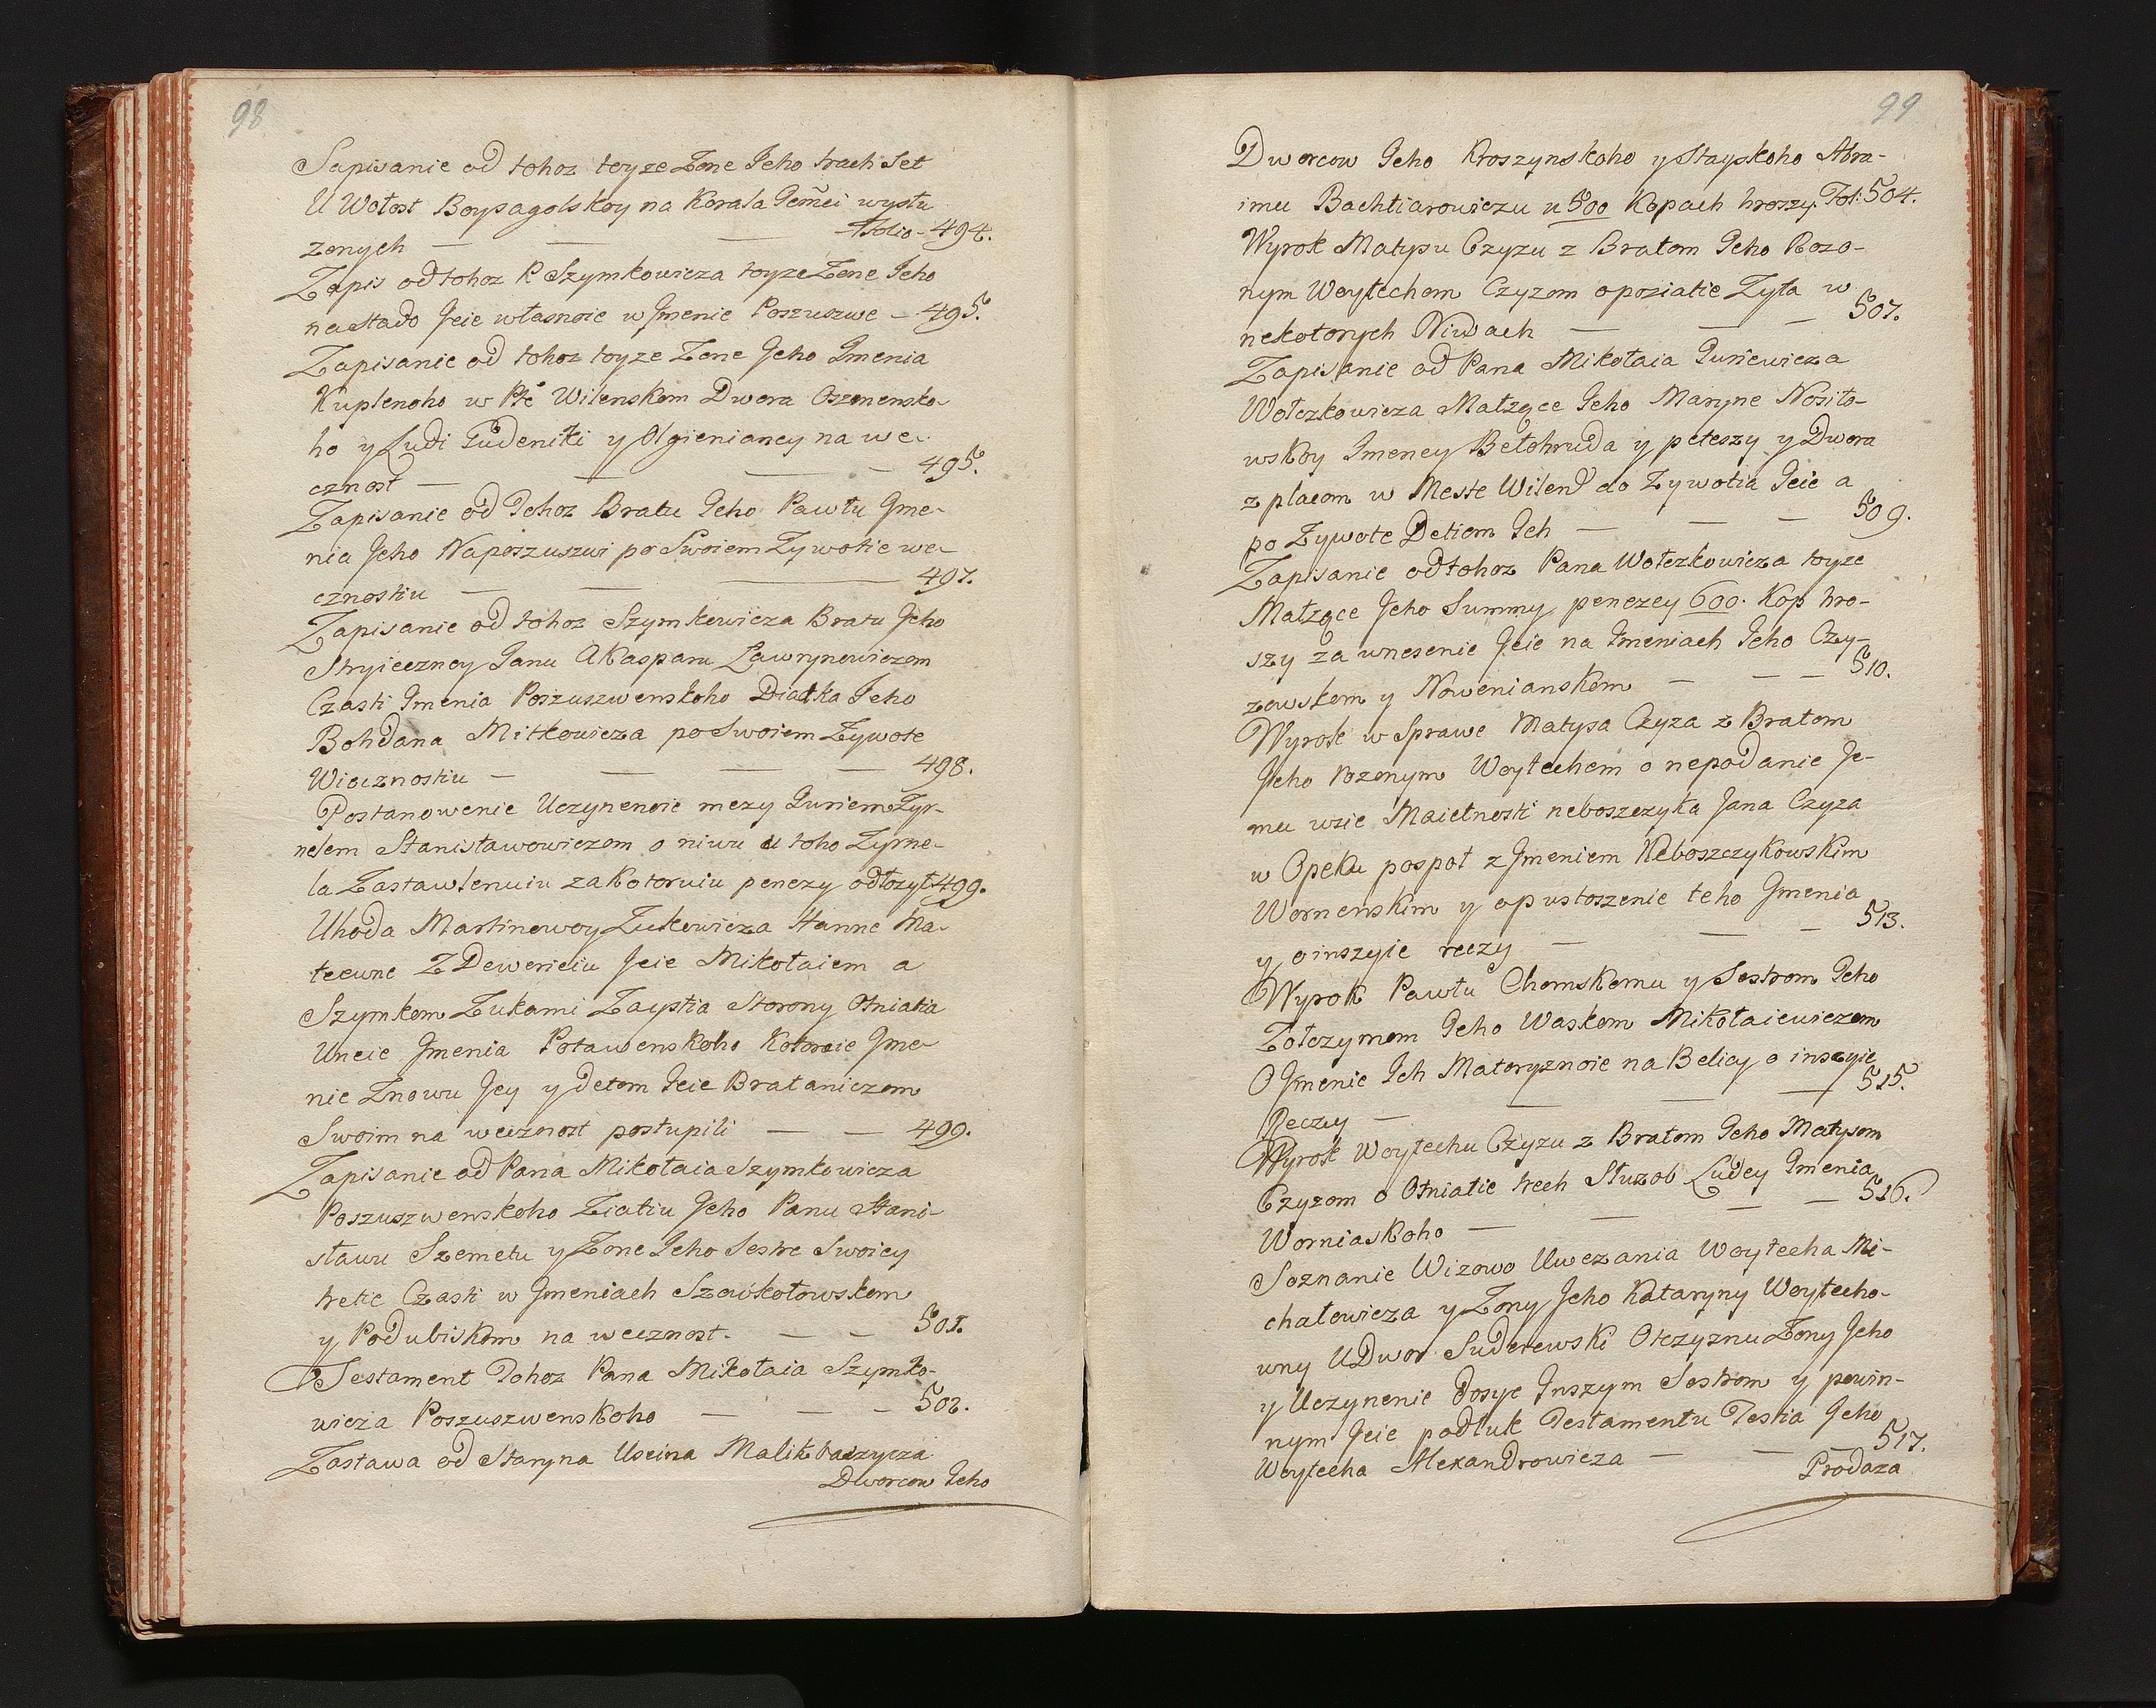 98
Sapisanie od tohoz toyze Zone Jeho trach Set
U Wołost Boysagolskoy na Korala Jemei wysłu
zonych — — — Folio - 494.
Zapis od tohoz P Szymkowicza toyze Zene Jeho
na stado Jeie własnoie w Jmenie Poszuszwe - 495.
Zapisanie od tohoz toyze Zene Jeho Jmenia
Kuplenoho w Pte Wilenskom Dwora Oszmensko-
ho y Ludi Gudeniki y Olgieniancy na we-
cznost — — — — 495.
Zapisanie od Tohoz Bratu Jeho Pawłu Jme-
nia Jeho Naposzuszwi po Swoiem Zywotie we-
cznostiu — — — 497.
Zapisanie od tohoz Szymkowicza Bratu Jeho
Stryieczney Janu A Kasparu Ławrynowiczom
Czasti Jmenia Poszuszwenskoho Diadka Jeho
Bohdana Mitkowicza po Swoiem Zywote
Wiecznostiu — — — — 498.
Postanowenie Uczynenoie mezy Juriem Zyr-
nelem Stanisławowiczom o niwu u toho Zyrne-
la Zastawlenuiu za Kotoruiu penezy odłozył 499.
Uhoda Martinowoy Zukowicza Hanne Ma-
teewne Z Deweriu Jeie Mikołaiem a
Szymkom Zukami Zaystia Storony Otniatia
Uneie Jmenia Poławenskoho Kotoroie Jme-
nie Znowu Jey y detem Jeie Brataniczom
Swoim na wecznost postupili — — 499.
Zapisanie od Pana Mikołaia Szymkowicza
Poszuszwenskoho Ziatiu Jeho Panu Stani-
sławu Szemetu y Zone Jeho Sestre Swoiey
tretie Czasti w Jmeniach Szawkotowskom
y Podubiskom na wecznost. — — 501.
Testament Tohoz Pana Mikołaia Szymko-
wicza Poszuszwenskoho — — — 502.
Zastawa od Staryna Useina Malikbaszycza
Dworcow Jeho
99
Dworcow Jeho Kroszynskoho y Stayskoho Abra-
imu Bachtiarowiczu u 500 Kopach hroszy. Fol: 504.
Wyrok Matysu Czyzu z Bratom Jeho Rozo-
nym Woytechom Czyzom o poziatie Zyta w
nekotorych Niwach — — — 507.
Zapisanie od Pana Mikołaia Juriewicza
Wołczkowicza Małzące Jeho Maryne Nosiło-
wskoy Jmeney Bełohruda y peteszy y Dwora
z placom w Meste Wilen: do Zywotia Jeie a
po Zywote Detiom Jeh — — — 509.
Zapisanie od tohoz Pana Wołczkowicza toyze
Małzące Jeho Summy penezey 600. Kop hro-
szy za wnesenie Jeie na Jmeniach Jeho Czy-
zowskom y Nowenianskom — — — 510.
Wyrok w Sprawe Matysa Czyza z Bratom
Jeho Rozonym Woytechem o nepodanie Je-
mu wsie Maietnosti neboszczyka Jana Czyza
w Opeku pospoł z Jmeniem Neboszczykowskim
Wornenskim y opustoszenie toho Jmenia
y o inszyie reczy — — — 513.
Wyrok Pawłu Chomskomu y Sestrom Jeho
Z otczymom Jeho Waskom Mikołaiewiczom
O Jmenie Jeh Materyznoie na Belicy o inszyie
Reczy — — — — 515.
Wyrok Woytechu Czyzu z Bratom Jeho Matysom
Czyzom o Otniatie trech Słuzob Ludey Jmenia
Worniaskoho — — — — 516.
Soznanie Wizowo Uwezania Woytecha Mi-
chałowicza y Zony Jeho Kataryny Woytecho-
wny U Dwor Suderewski Otczyznu Zony Jeho
y Uczynenie dosyc Jnszym Sestrom y powin-
nym Jeie podłuk Testamentu Testia Jeho
Woytecha Alexandrowicza — — — 517.
Prodaza